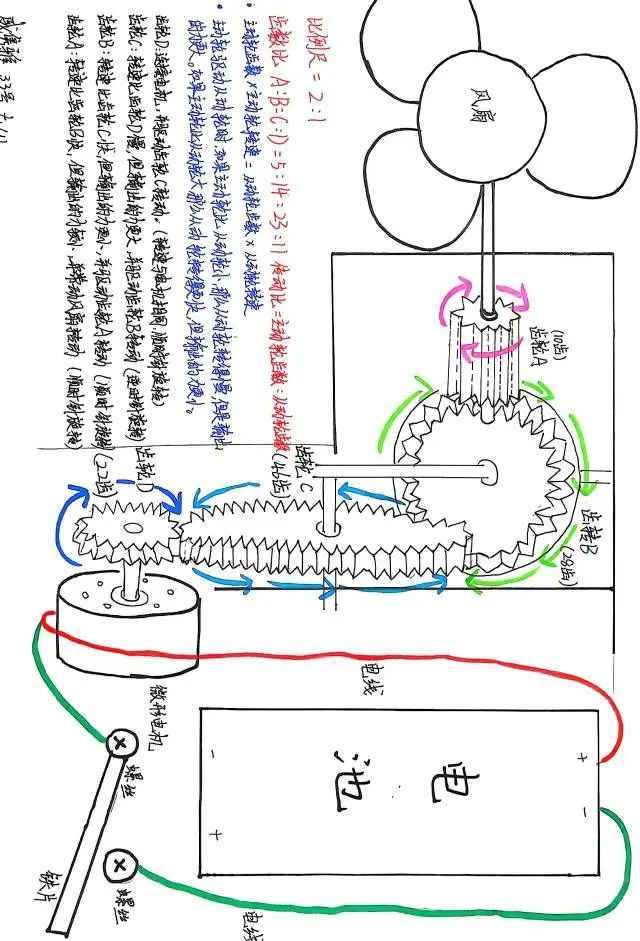 比例尺 = 2:1
齿数比 A:B:C:D = 5:14:23:11 传动比 = 主动轮齿数:从动轮齿数
· 主动轮齿数 × 主动轮转速 = 从动轮齿数 × 从动轮转速
· 主动轮驱动从动轮时，如果主动轮比从动轮小，那么从动轮转得慢，但是输出
的力更大。如果主动轮比从动轮大，那么从动轮转得更快，但输出的力更小。
齿轮D：连接电机，并驱动齿轮C转动。（转速与电机相同，顺时针旋转）
齿轮C：转速比齿轮D慢，但输出的力更大，并驱动齿轮B转动
齿轮B：转速比齿轮C快，但输出的力更小，并驱动齿轮A转动（顺时针旋转）
齿轮A：转速比齿轮B快，但输出的力更小，并带动风扇转动（顺时针旋转）
33号
风扇
齿轮A
(10齿)
齿轮B
(28齿)
齿轮C
(46齿)
齿轮D
(22齿)
微形电机
电线
螺丝
螺丝
铁片
电线
电池
+
-
-
+